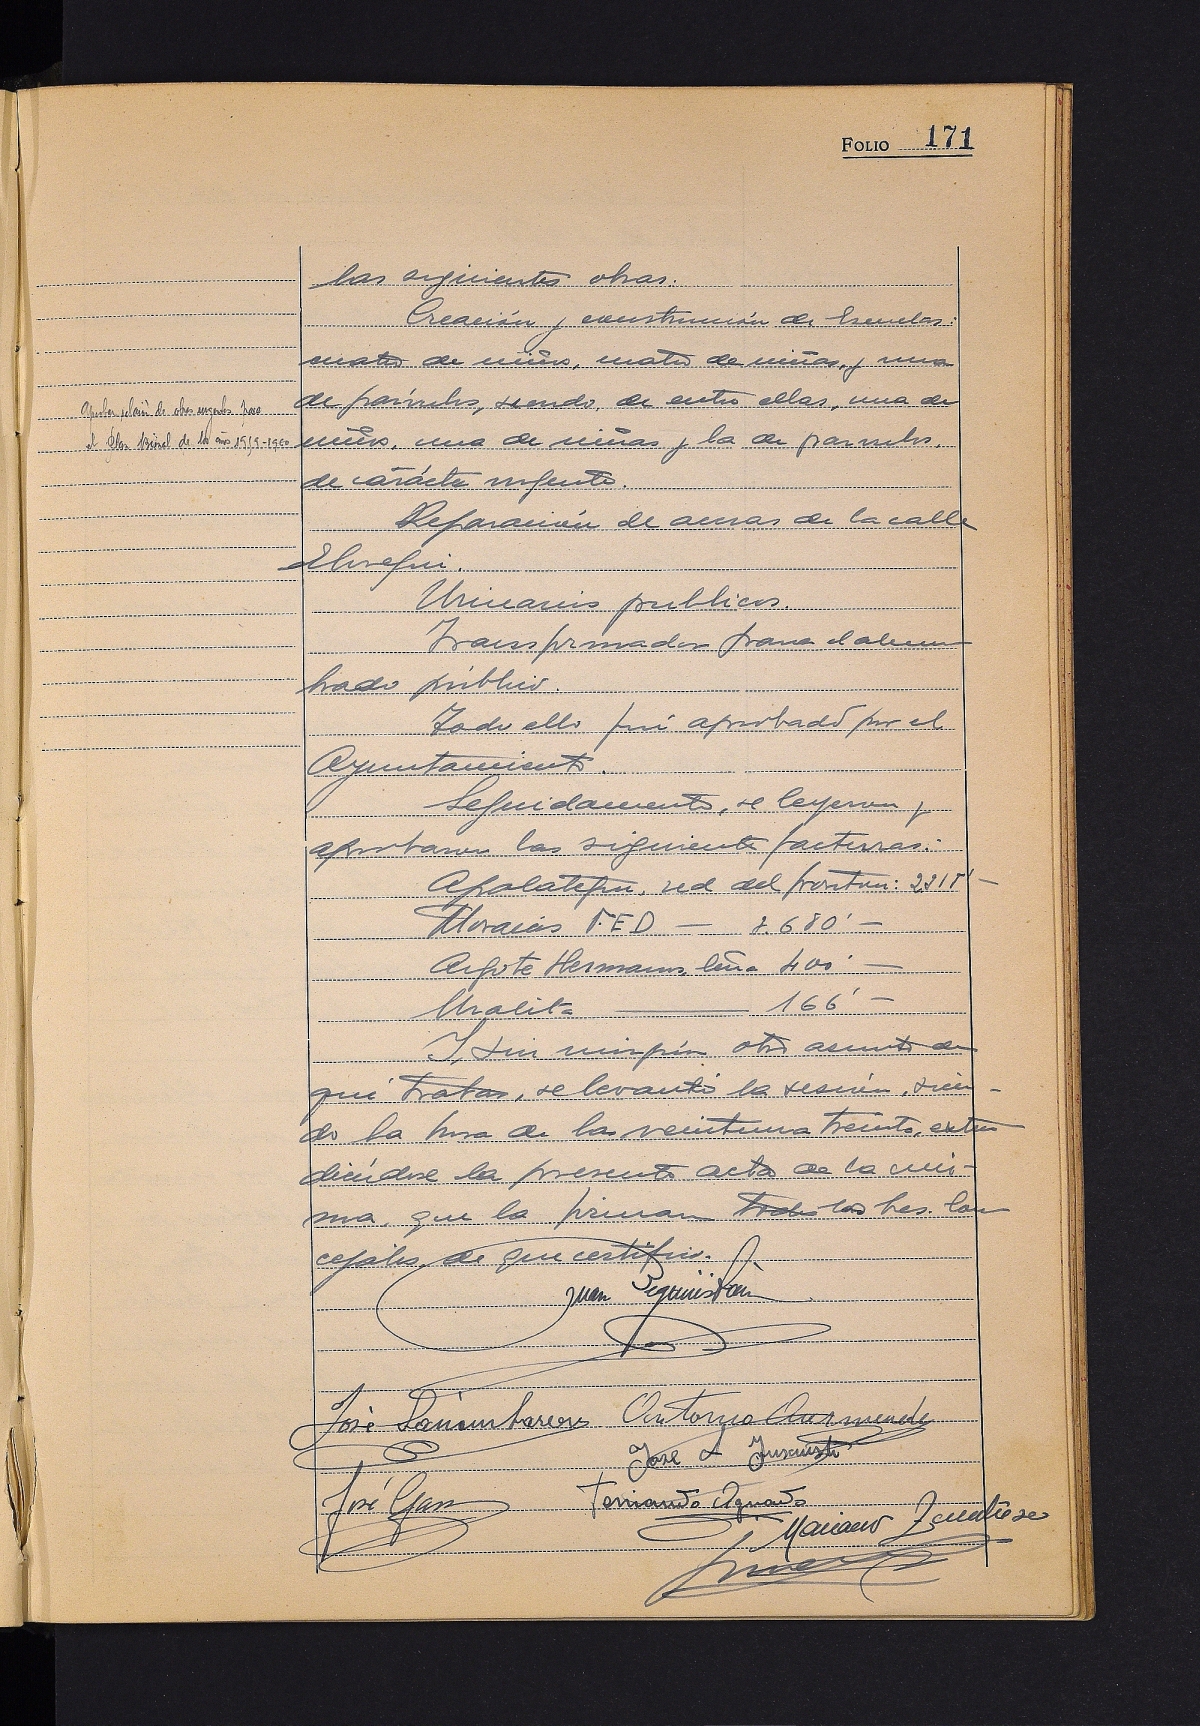 FOLIO 171
las siguientes obras.
Creación y construcción de Escuelas:
cuatro de niños, cuatro de niñas, y una
de párvulos, siendo, de entre ellas, una de
Aprobar relación de obras urgentes para
niños, una de niñas y la de parvulos,
el Plan Bienal de los años 1959-1960
de carácter urgente.
Reparación de aceras de la calle
Elosegui.
Urinarios publicos.
Transformador para el alum
brado público.
Todo ello fué aprobado por el
Ayuntamiento.
Seguidamente, se leyeron y
aprobaron las siguiente facturas:
red del frontón:
FED — 2.680'—
Argote Hermanos, leña 400'—
Uralita — 166'—
Y, sin ningún otro asunto de
que tratar, se levantó la sesión, sien-
do la hora de las veintiuna treinta, exten
diéndose la presente acta de la mis-
ma, que la firman todos los Sres. Con
cejales, de que certifico.
Juan Beguiristain
José Antonio
José A
José Fernando Aguado
Mariano